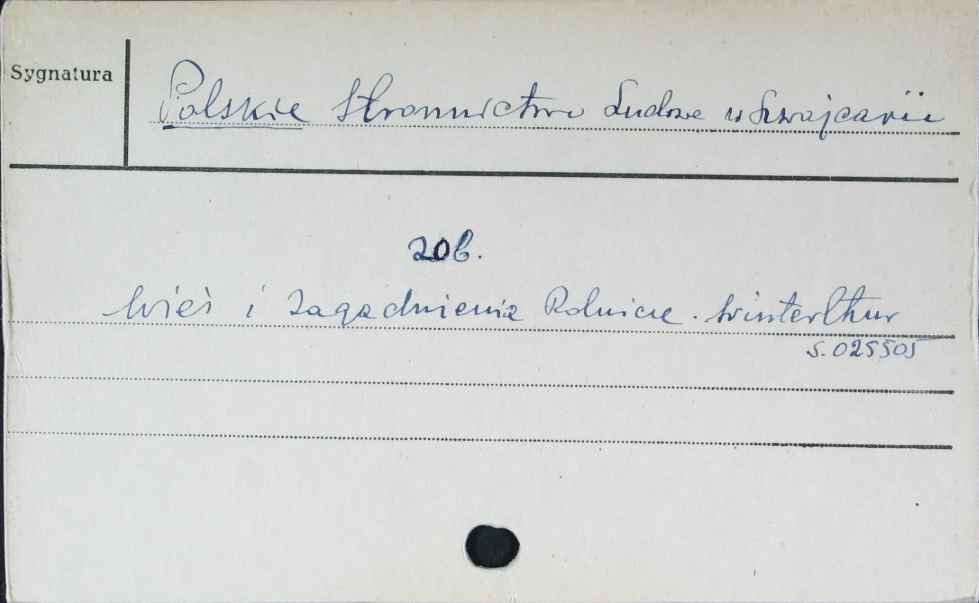 Sygnatura
Polskie Stronnictwo Ludowe w Szwajcarii
zob.
Wieś i Zagadnienia Rolnicze. Winterthur
S. 025505